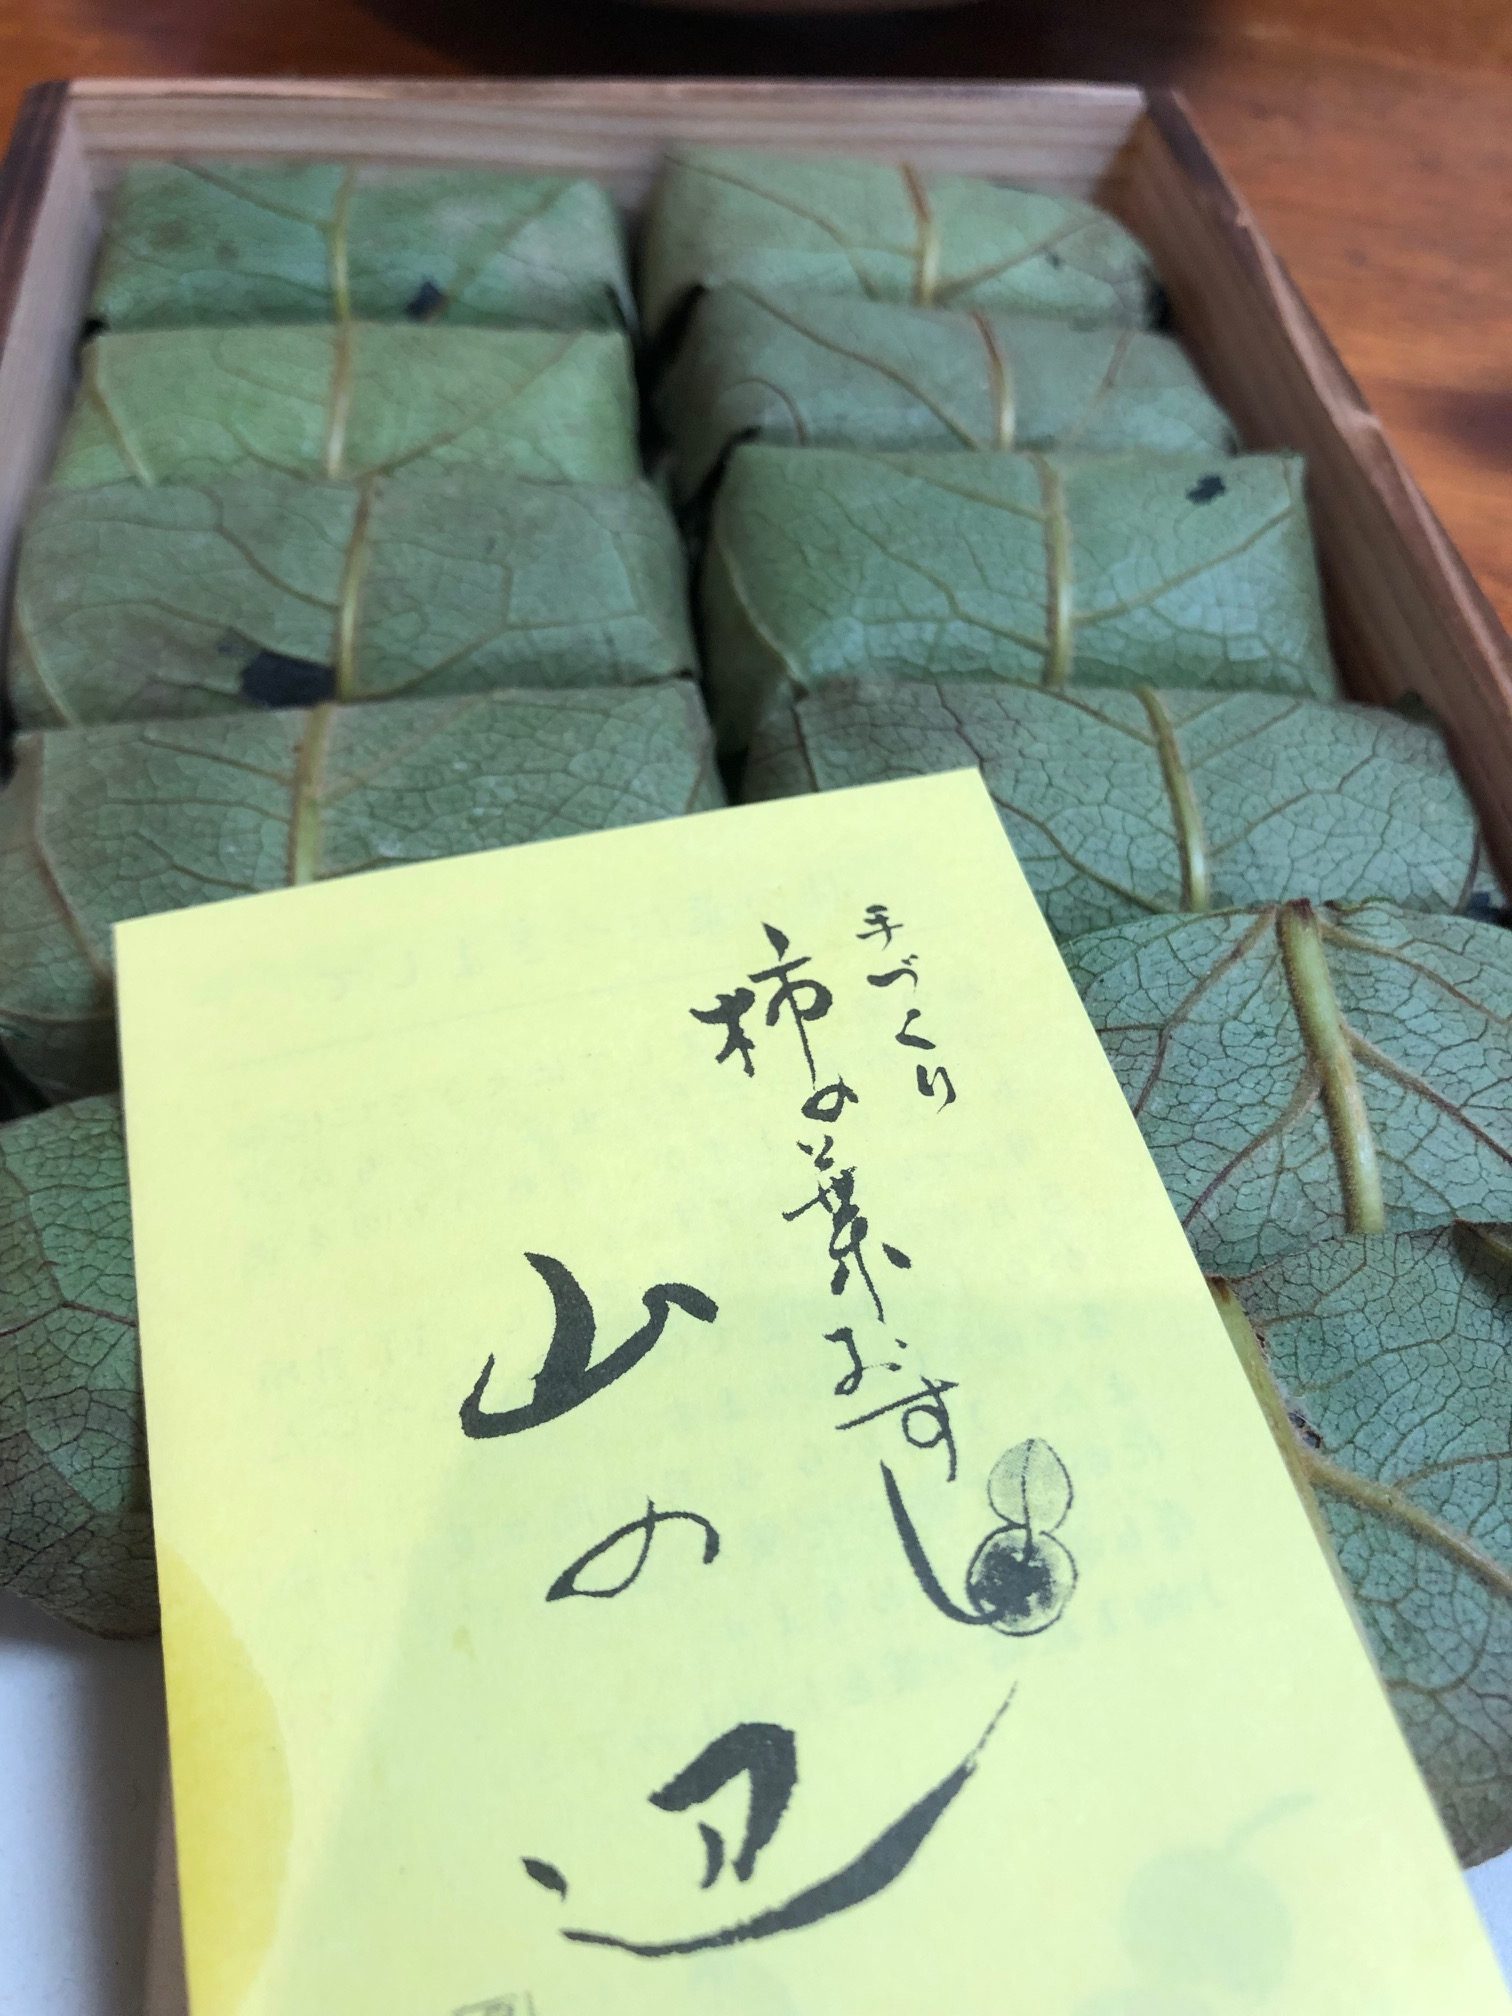 手づくり
柿の葉おすし
山の辺